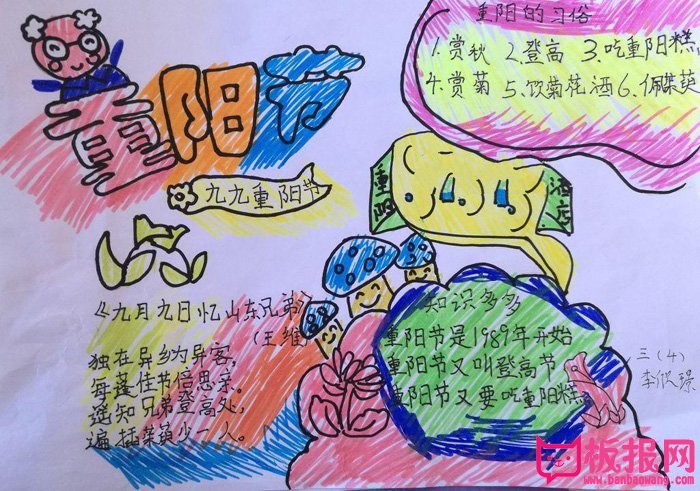 重阳节
九九重阳节
重阳的习俗
1.赏秋 2.登高 3.吃重阳糕
4.赏菊 5.饮菊花酒 6.佩茱萸
重阳
酒店
《九月九日忆山东兄弟》
(王维)
独在异乡为异客,
每逢佳节倍思亲。
遥知兄弟登高处,
遍插茱萸少一人。
知识多多
重阳节是1989年开始
重阳节又叫登高节
重阳节又要吃重阳糕
三(4)
板报网
www.banbaowang.com